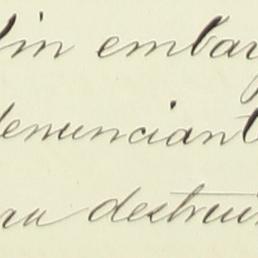 Sin embar
denunciant
ra destrui